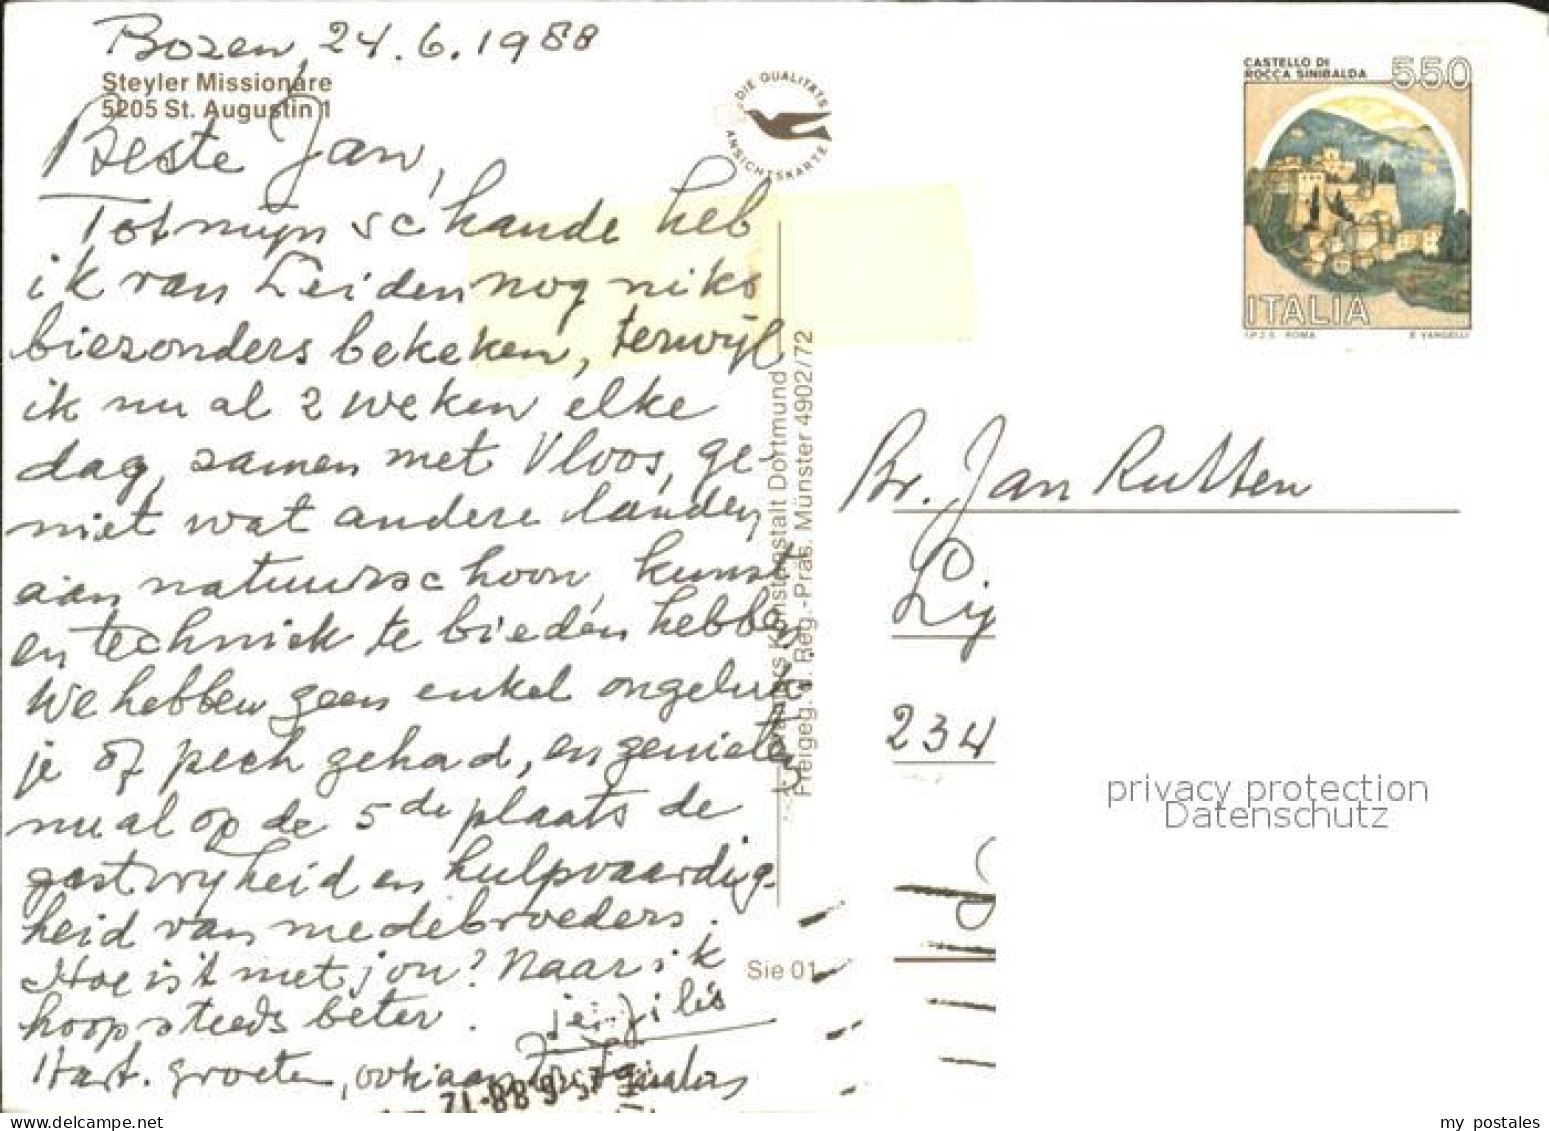 Bozen, 24.6.1988
Steyler Missionare
5205 St. Augustin 1
Beste Jan,
Tot mijn schande heb
ik van Leiden nog niks
biezonders bekeken, terwijl
ik nu al 2 weken elke
dag, samen met Vloos, ge-
niet wat andere landen
aan natuurschoon, kunst
en techniek te bieden hebben.
We hebben geen enkel ongeluk-
je of pech gehad, en genieten
nu al op de 5de plaats de
gastvrijheid en hulpvaardig-
heid van medebroeders.
Hoe is 't met jou? Naar ik
hoop steeds beter.
Hart. groeten, ook aan
DIE QUALITÄTS
ANSICHTSKARTE
Kunstanstalt Dortmund
Freigeg. d. Reg.-Präs. Münster 4902/72
Sie 01
CASTELLO DI
ROCCA SINIBALDA
550
ITALIA
I.P.Z.S. ROMA
E. VANGELLI
Br. Jan Rutten
Lij
234
privacy protection
Datenschutz
my postales